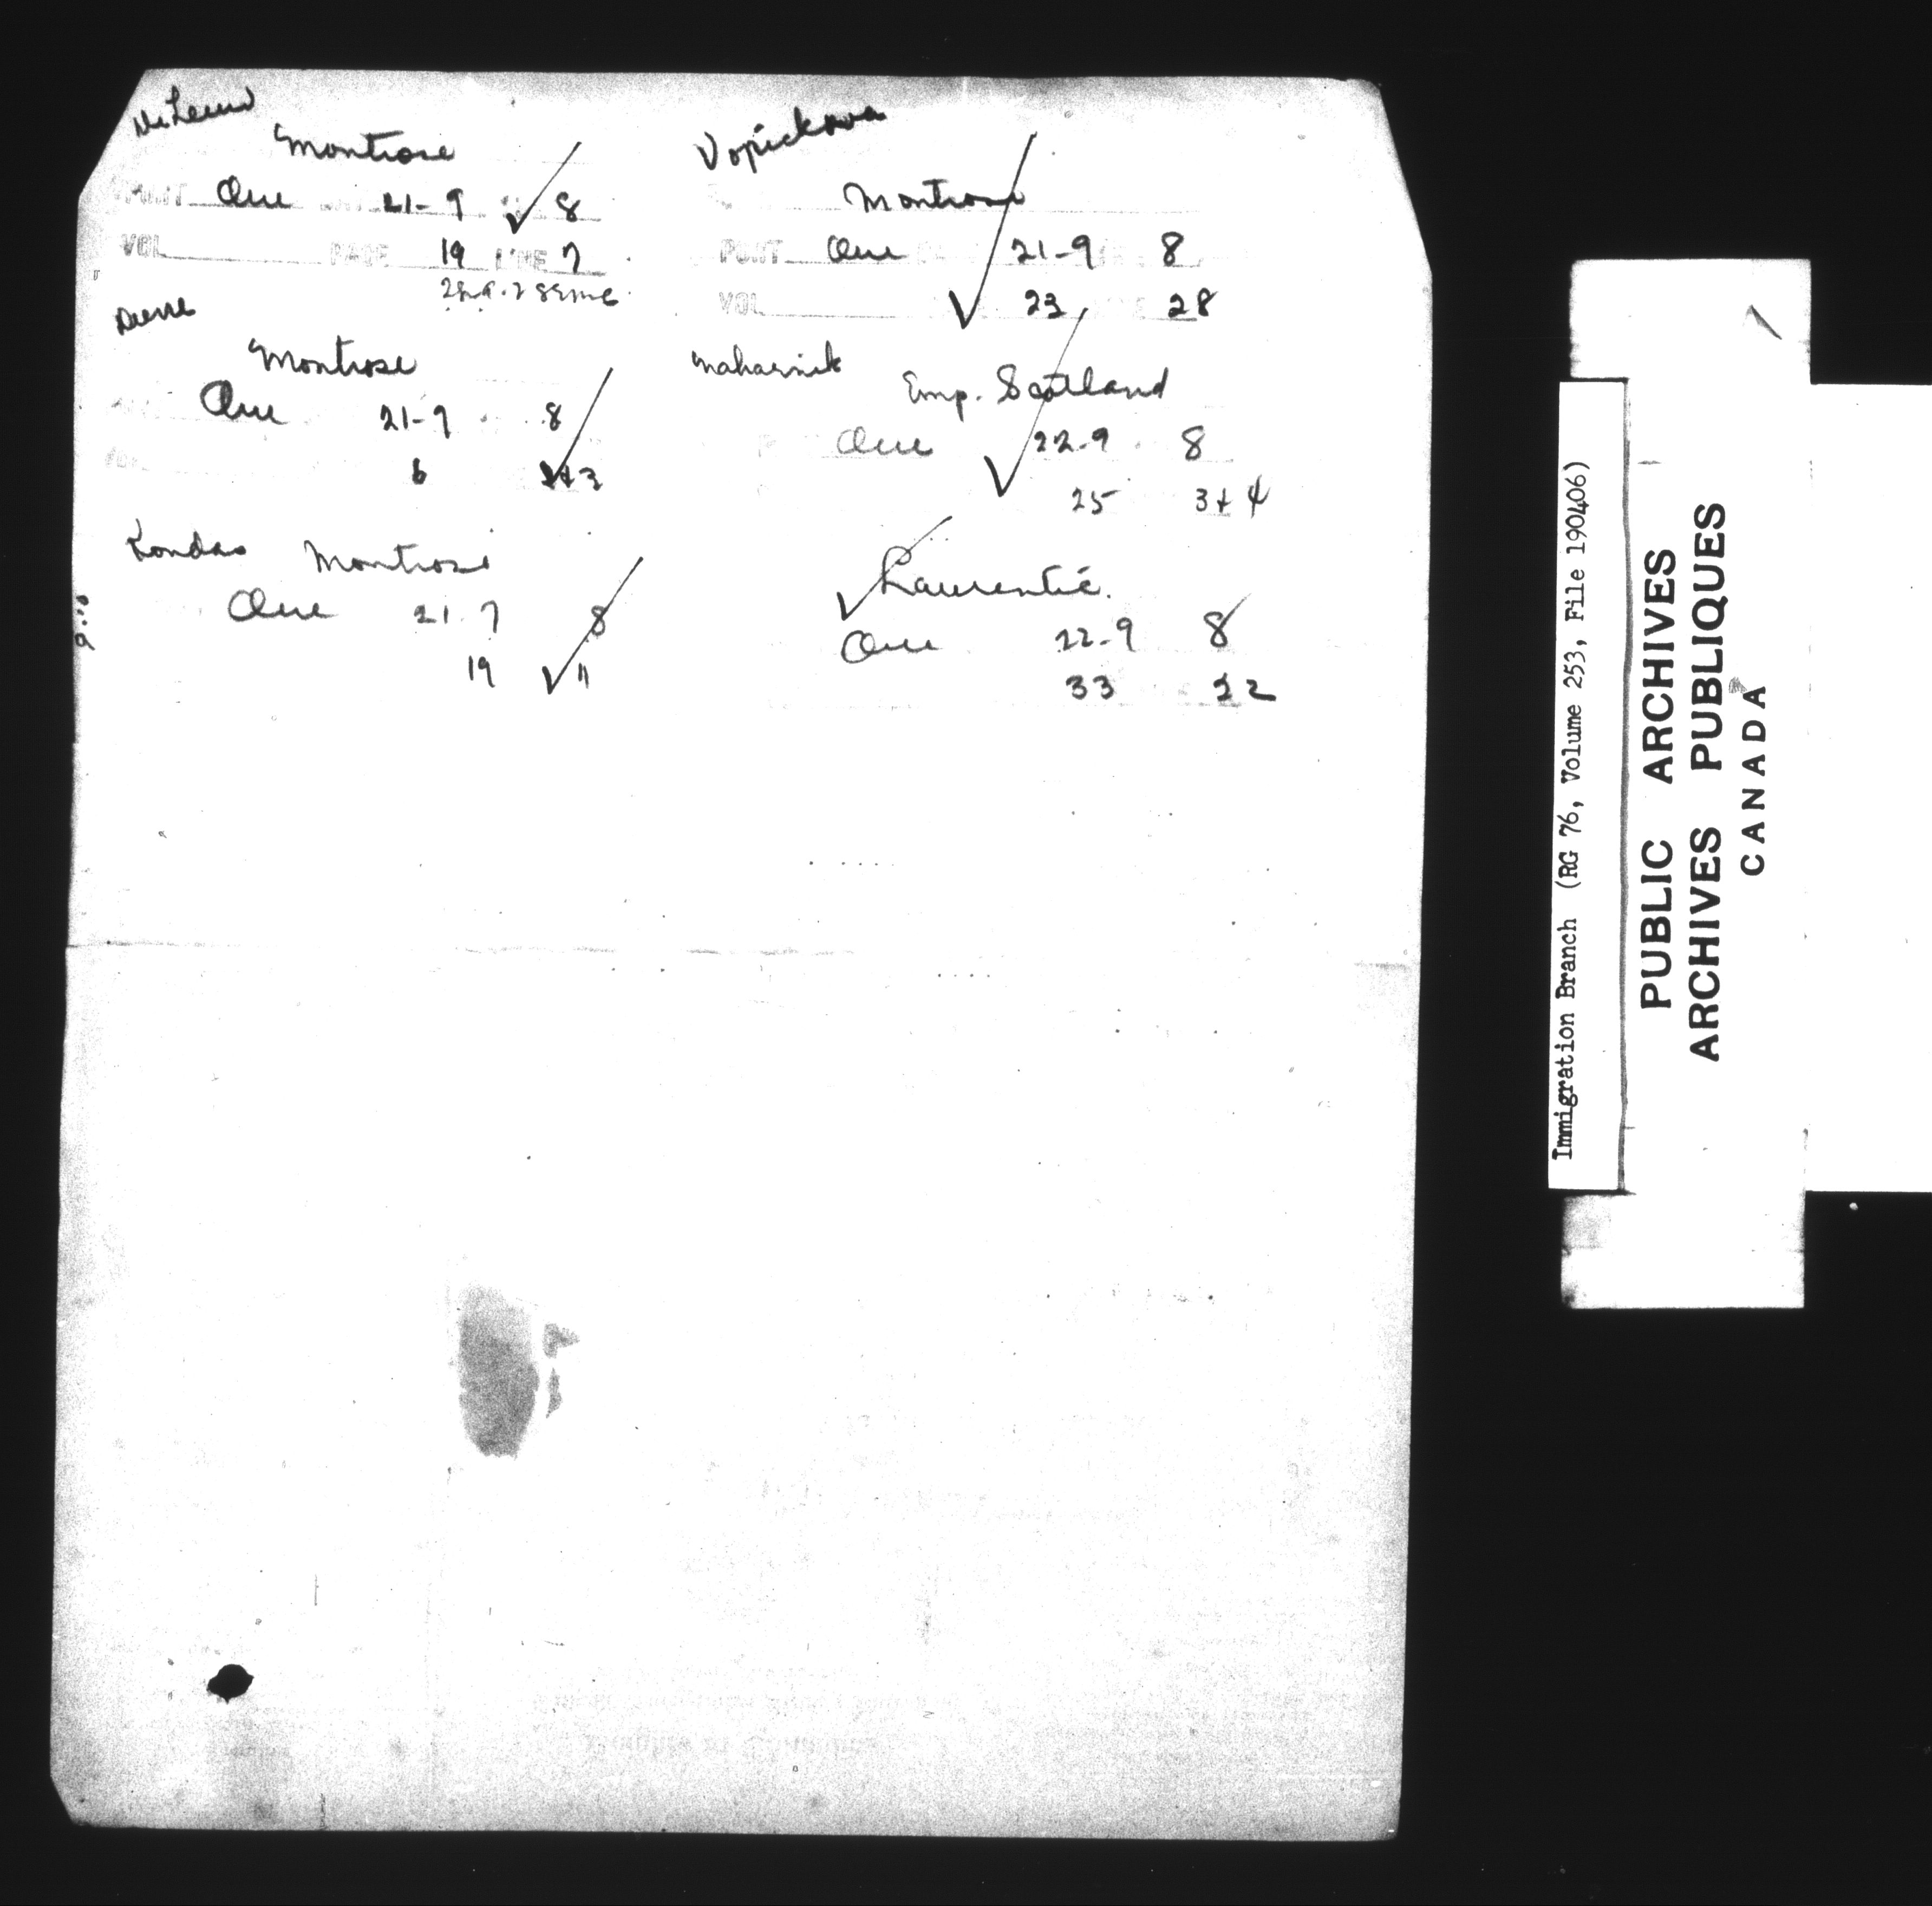 Montrose
PORT Que 21-9 8
VOL PAGE 19 LINE 7
Montrose
Que 21-9 8
6 2+3
Kondas Montrose
Que 21 9 8
19 11
Vopickova
Montrose
PORT Que 21-9 8
VOL 23 28
Maharnik
Emp. Scotland
Que 22-9 8
25 3+4
Laurentic.
Que 22-9 8
33 22
Immigration Branch (RG 76, Volume 253, File 190406)
PUBLIC ARCHIVES
ARCHIVES PUBLIQUES
CANADA